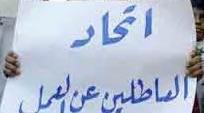 اتحاد
العاطلين عن العمل